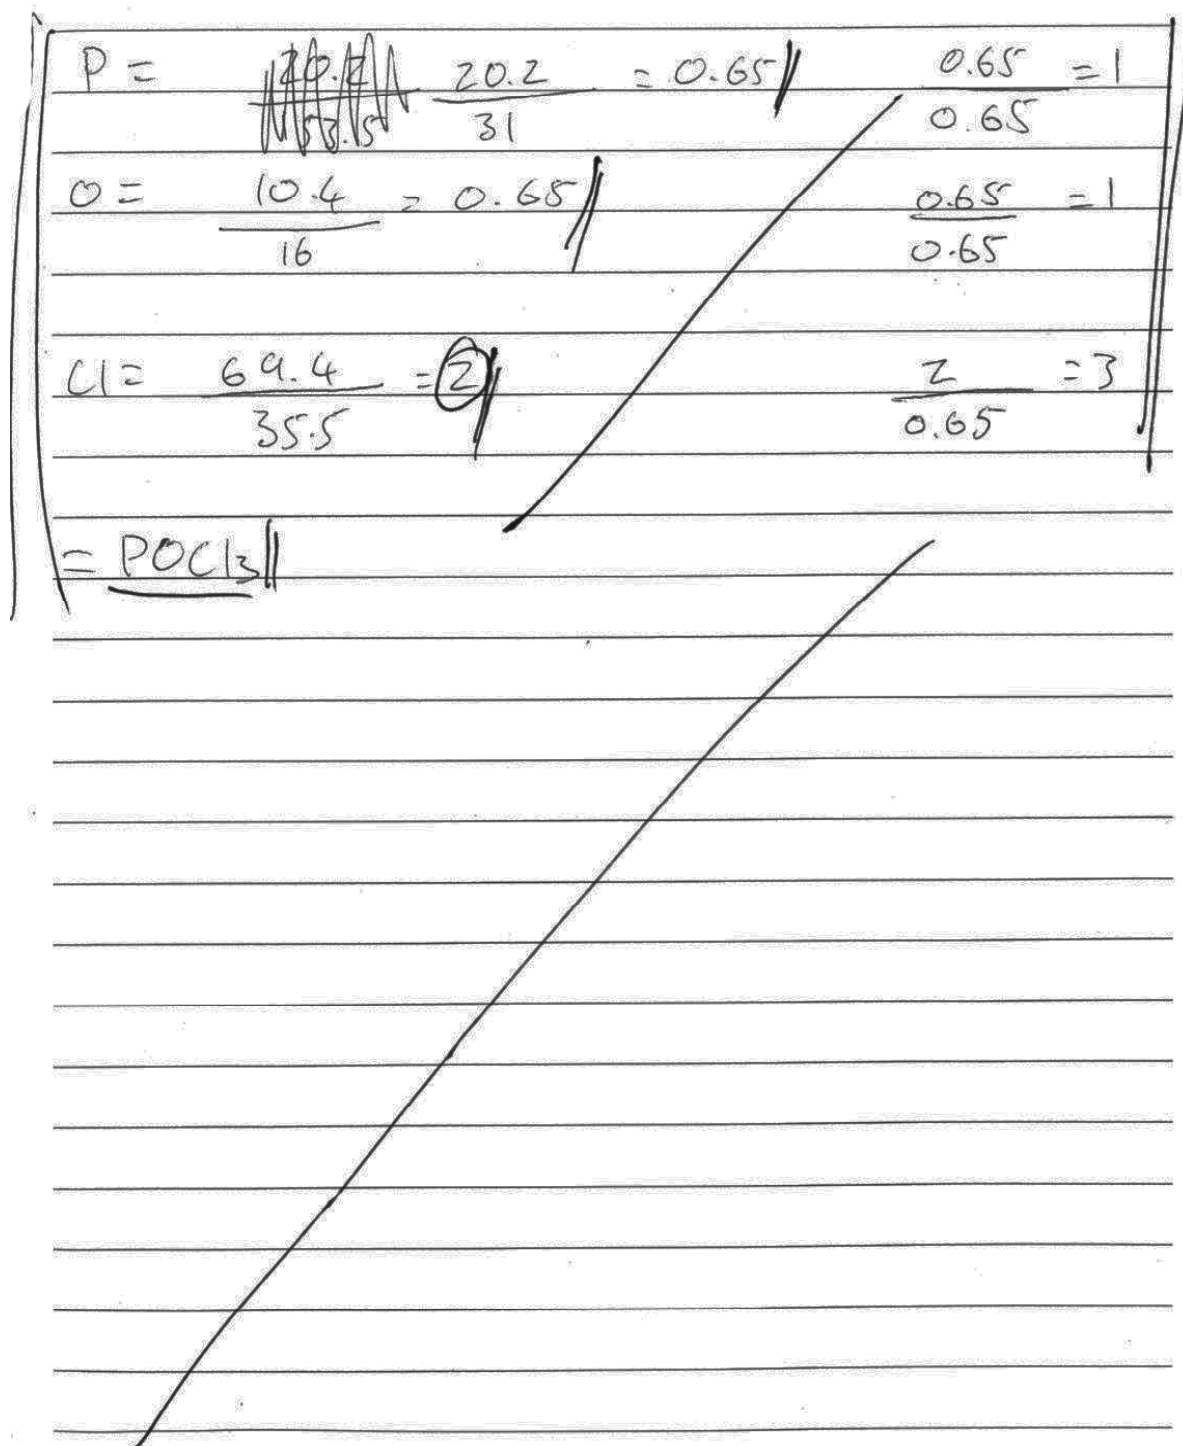 P = 20.2/31 = 0.65 0.65/0.65 = 1
O = 10.4/16 = 0.65 0.65/0.65 = 1
Cl = 69.4/35.5 = 2 2/0.65 = 3
= POCl3